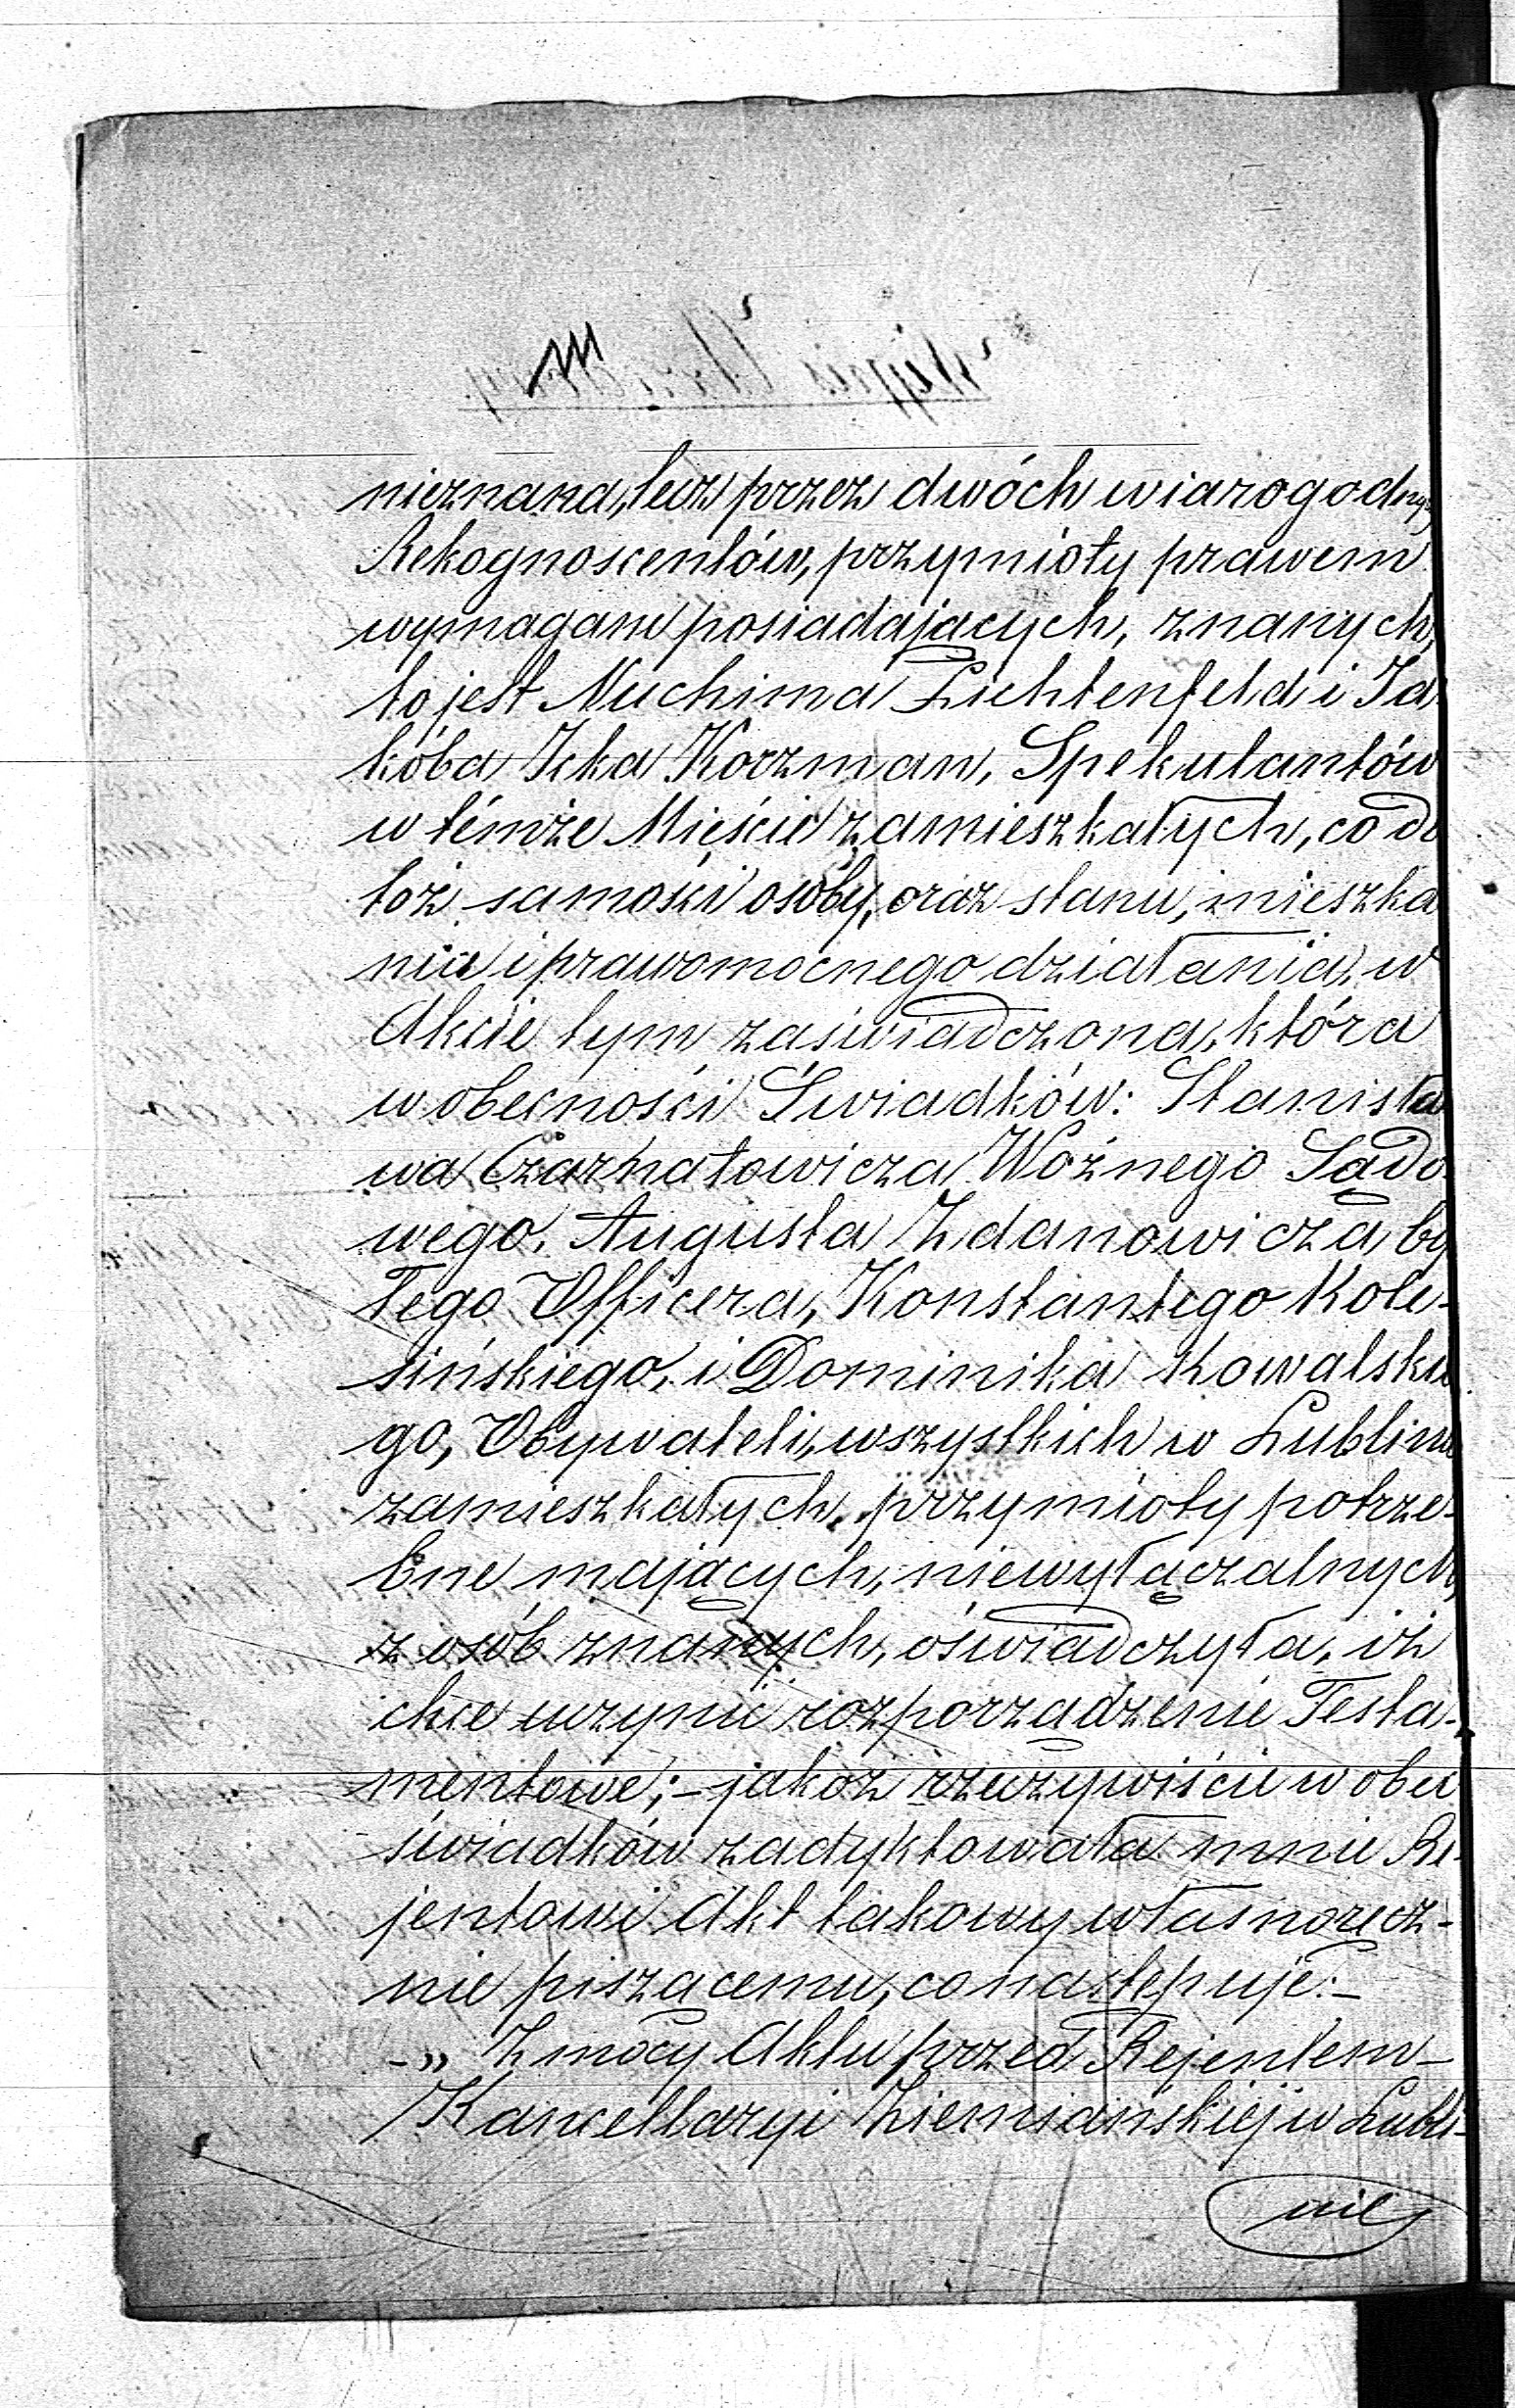 nieznana, lecz przez dwóch wiarogodny
Rekognoscentów, przymioty prawem
wymagane posiadających, znanych,
to jest Nuchima Lichtenfeld i Ja
kóba Icka Korzman, Spekulantów
w témże Mieście zamieszkałych, co do
toż samości osoby, oraz stanu, mieszka
nia i prawomocnego działania, w
Akcie tym zaświadczona, która
w obecności Świadków: Stanisła
wa Czarnatowicza Woźnego Sądo
wego, Augusta Zdanowicza, by
łego Officera, Konstantego Kole-
sińskiego, i Dominika Kowalskie
go, Obywateli, wszystkich w Lublinie
zamieszkałych, przymioty potrze-
bne mających, niewyłączalnych,
z osób znanych, oświadczyła, iż
chce uczynić rozporządzenie Testa-
mentowe; – jakoż rzeczywiście w obec
świadków zadyktowała mnie Re-
jentowi Akt takowy własnoręcz-
nie piszącemu, co następuje: –
– „ Z mocy Aktu przed Rejentem –
Kancellaryi Ziemiańskiej w Lubli-
nie